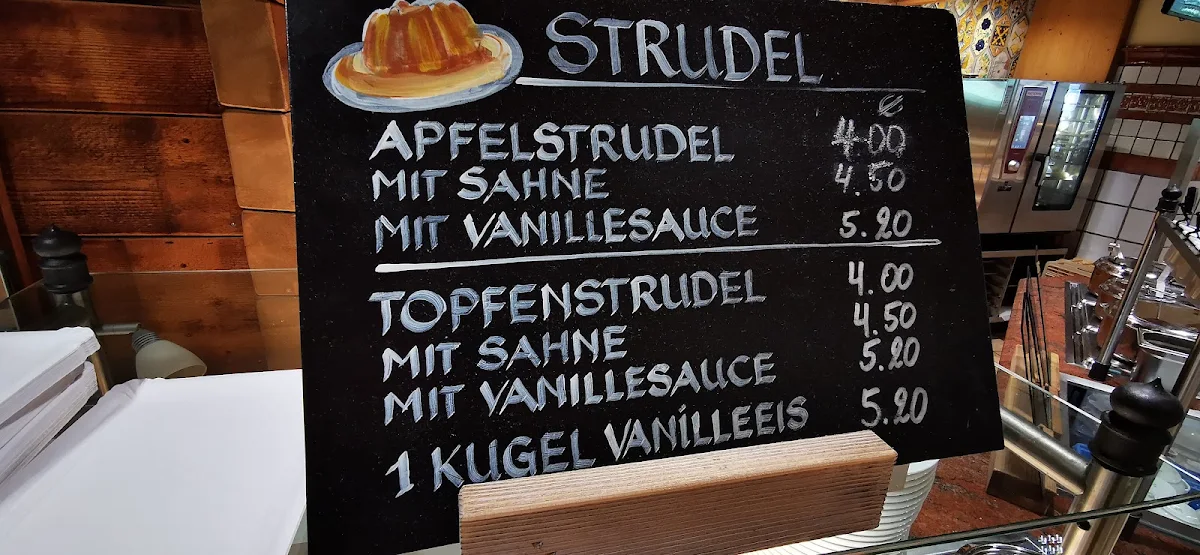 STRUDEL
€
APFELSTRUDEL 4.00
MIT SAHNE 4.50
MIT VANILLESAUCE 5.20
TOPFENSTRUDEL 4.00
MIT SAHNE 4.50
MIT VANILLESAUCE 5.20
1 KUGEL VANILLEEIS 5.20